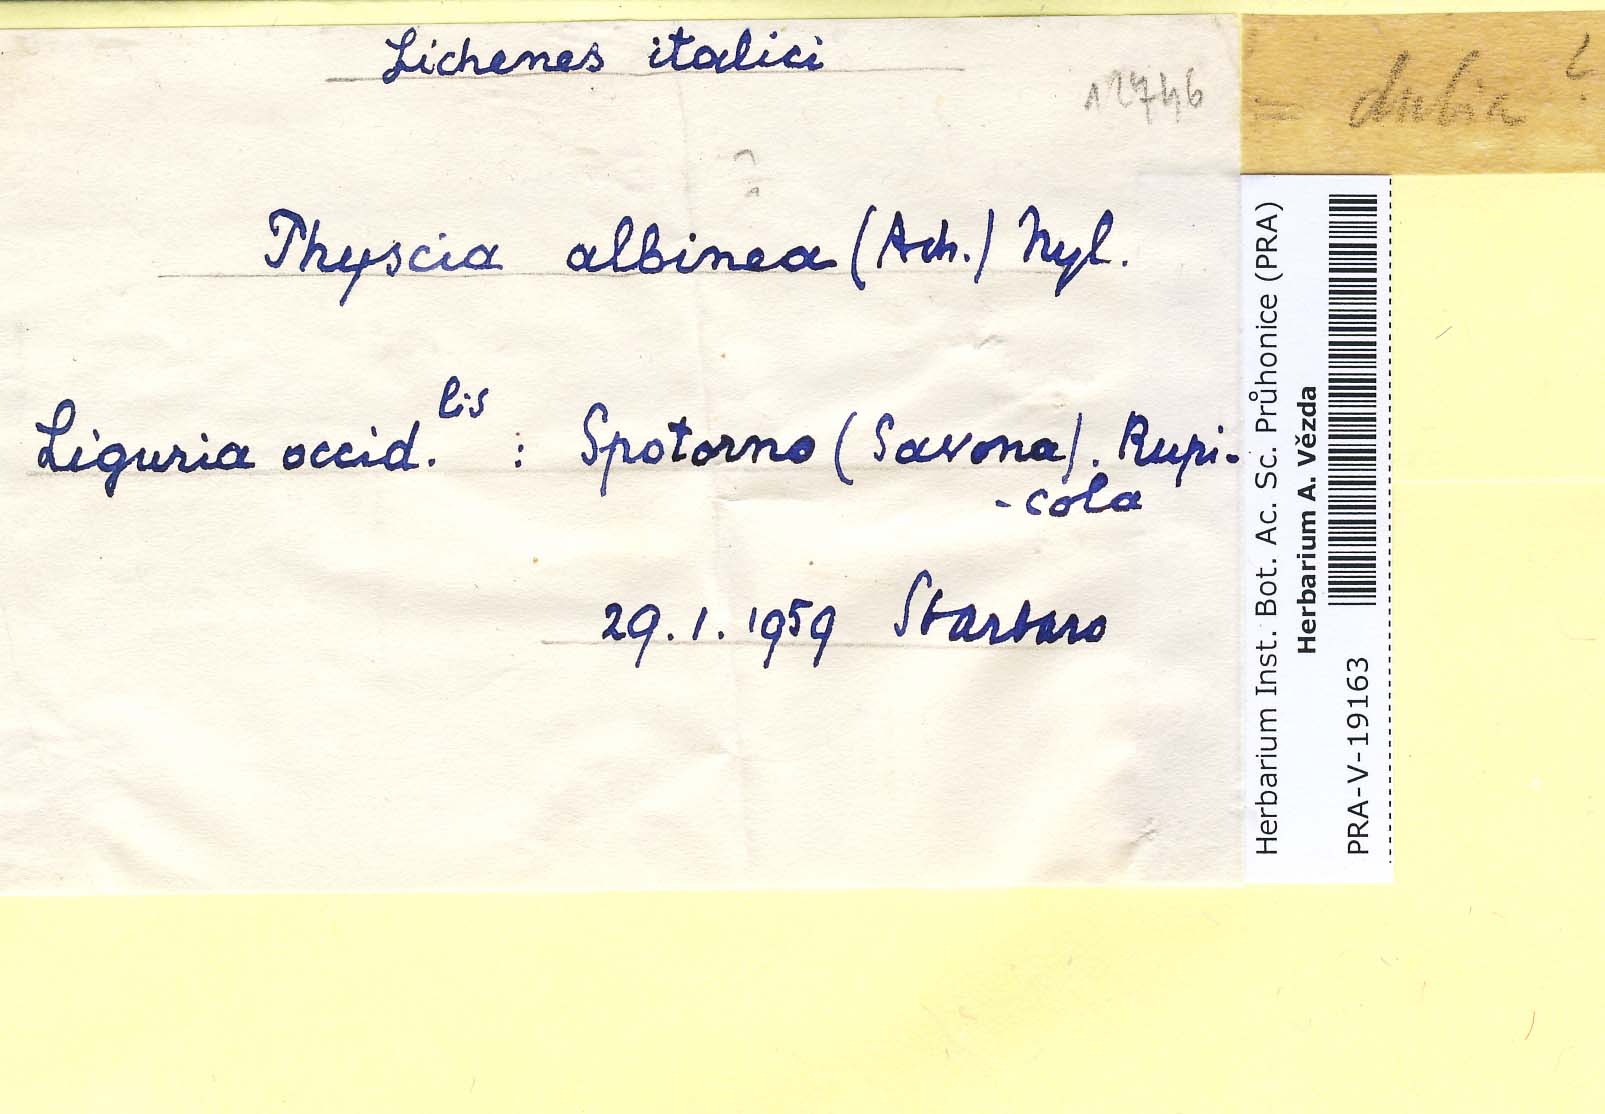 Lichenes italici
12746
- dubia ?
?
Physcia albinea (Ach.) Nyl.
Liguria occid.lis : Spotorno (Savona). Rupi-
-cola
29.1.1959 Sbarbaro
Herbarium Inst. Bot. Ac. Sc. Průhonice (PRA)
Herbarium A. Vězda
PRA-V-19163